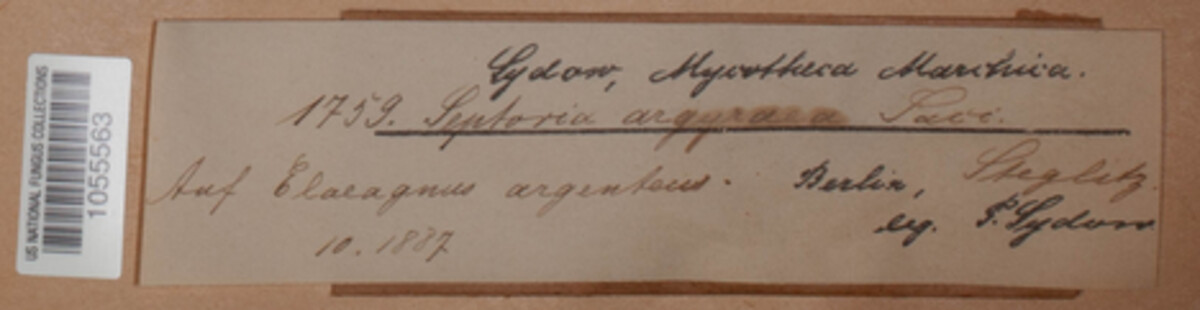 US NATIONAL FUNGUS COLLECTIONS
01055563
Sydow, Mycotheca Marchica.
1759. Septoria argyraea Sacc.
Auf Elaeagnus argenteus. Berlin, Steglitz.
10. 1887 leg. P. Sydow